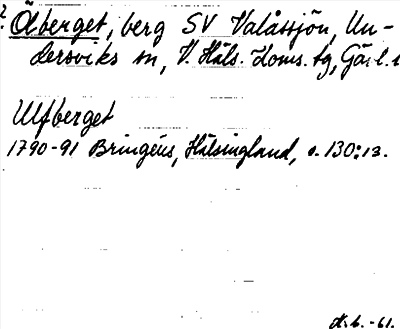 2. Älberget, berg SV Valåssjön, Un-
dersviks sn, V. Häls. doms. tg, Gävl. l
Ulfberget
1790-91 Bringéus, Hälsingland, s. 130:13.
-61.